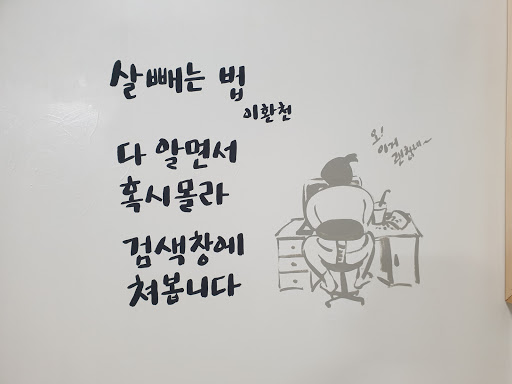 살 빼는 법
이환천
다 알면서
혹시몰라
검색창에
쳐봅니다
오!
이거
괜찮네~